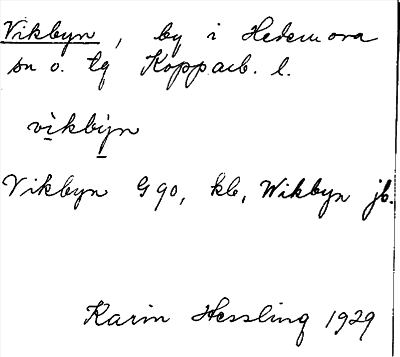 Vikbyn, by i Hedemora
sn o. tg Kopparb. l.
vikbyn
Vikbyn G 90, kb, Wikbyn jb.
Karin Hessling 1929